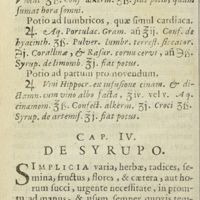 Sumat hora somni.
Potio ad lumbricos, quæ simul cardiaca.
♃. Aq. Portulac. Gram. añ ℥j. Conf. de
hyacinth. ʒß. Pulver. lumbr. terrest. siccator.
℈j. Corallinæ, & Rasur. cornu cervi, añ ℈ß.
Syrup. de limonb. ℥j. fiat potus.
Potio ad partum provenendum.
♃ Vini Hippocr. ex infusione cinam. & di-
ctamn. cum vino albo facta, ℥iv. vel v. Aq.
cinamom. ʒß. Confect. alkerm. ℈j. Croci ℈ß.
Syrup. de artemis. ℥j. fiat potus.
CAP. IV.
DE SYRUPO.
SIMPLICIA varia, herbæ, radices, se-
mina, fructus, flores, & cætera, aut ho-
rum succi, urgente necessitate, in prom-